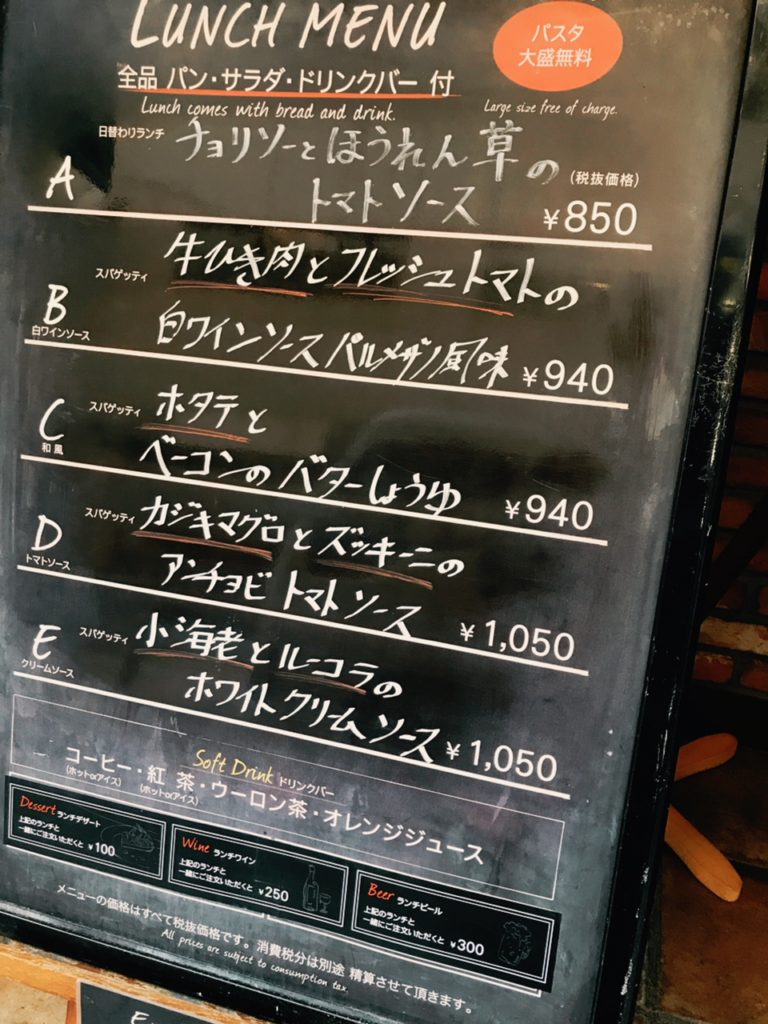 LUNCH MENU
パスタ
大盛無料
全品 パン・サラダ・ドリンクバー 付
Lunch comes with bread and drink.
Large size free of charge.
日替わりランチ
A
チョリソーとほうれん草の
トマトソース
(税抜価格)
¥850
スパゲッティ
B
白ワインソース
牛ひき肉とフレッシュトマトの
白ワインソースパルメザン風味 ¥940
スパゲッティ
C
和風
ホタテと
ベーコンのバターしょうゆ ¥940
スパゲッティ
D
トマトソース
カジキマグロとズッキーニの
アンチョビトマトソース ¥1,050
スパゲッティ
E
クリームソース
小海老とルーコラの
ホワイトクリームソース ¥1,050
Soft Drink ドリンクバー
コーヒー・紅茶・ウーロン茶・オレンジジュース
(ホットorアイス) (ホットorアイス)
Dessert ランチデザート
上記のランチと
一緒にご注文いただくと ¥100
Wine ランチワイン
上記のランチと
一緒にご注文いただくと ¥250
Beer ランチビール
上記のランチと
一緒にご注文いただくと ¥300
メニューの価格はすべて税抜価格です。消費税分は別途 精算させて頂きます。
All prices are subject to consumption tax.